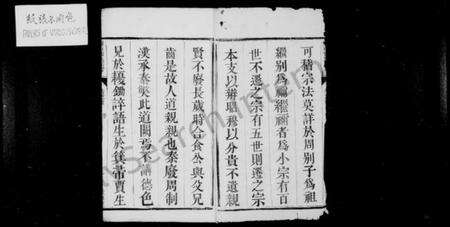 紙張不同色
PAPERS OF VARIOUS COLORS
可稽宗法莫詳於周別子為祖
繼別為宗繼禰者為小宗有百
世不遷之宗有五世則遷之宗
本支以辨昭穆以分貴不遺親
賢不廢長歲時合食公與父兄
齒是故人道親親也秦廢周制
漢承秦敝此道闕焉不講德色
見於耰鋤誶語生於箕帚賈生
MySearch